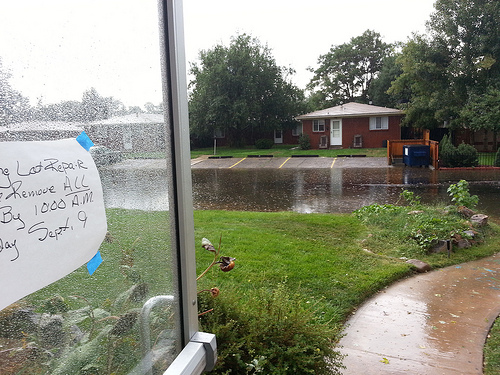 Lot Repair
Remove ALL
By 10:00 A.M
Sept. 9